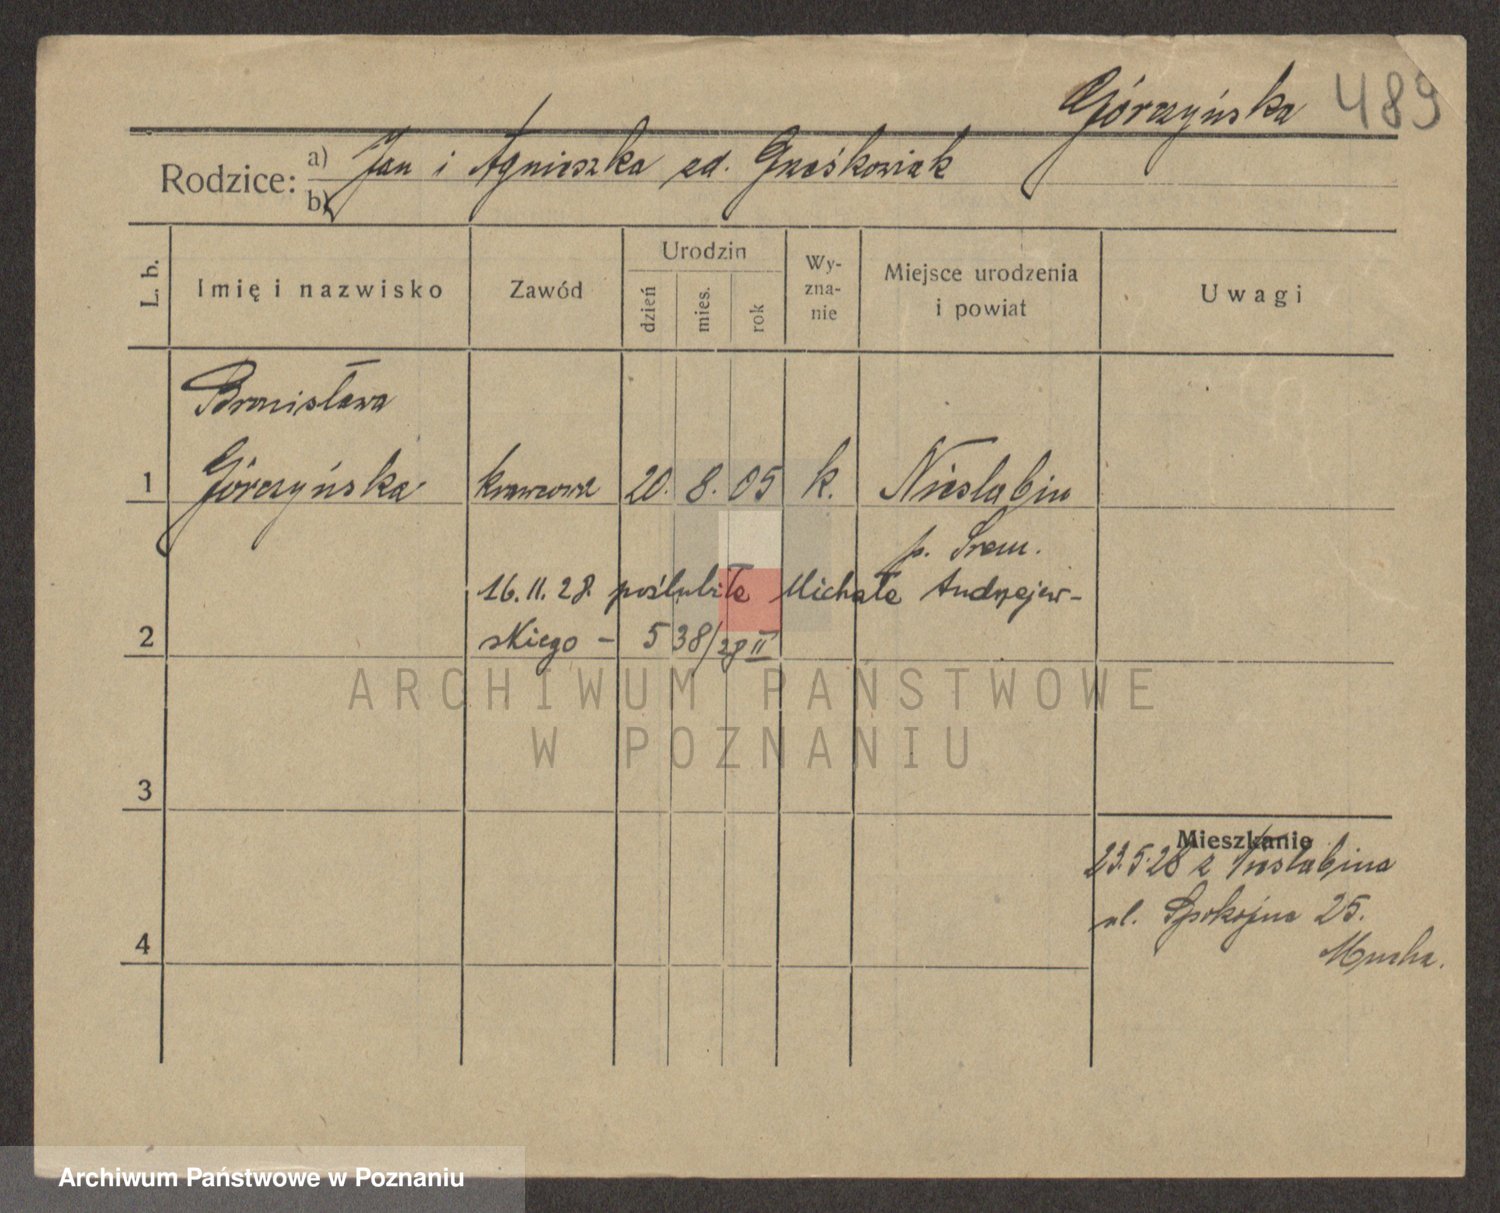 Górczyńska 489
Rodzice: a) Jan i Agnieszka zd. Grześkowiak
b)
L. b.
Imię i nazwisko
Zawód
Urodzin
dzień
mies.
rok
Wy-
zna-
nie
Miejsce urodzenia
i powiat
Uwagi
Bronisława
1 Górczyńska krawcowa 20. 8. 05 k. Niesłabin
p. Śrem.
16.11.28 poślubiła Michała Andrzejew-
2 skiego – 538/28 II
ARCHIWUM PAŃSTWOWE
W POZNANIU
3
Mieszkanie
23.5.28 z Niesłabina
4 ul. Spokojna 25.
Mucha.
Archiwum Państwowe w Poznaniu